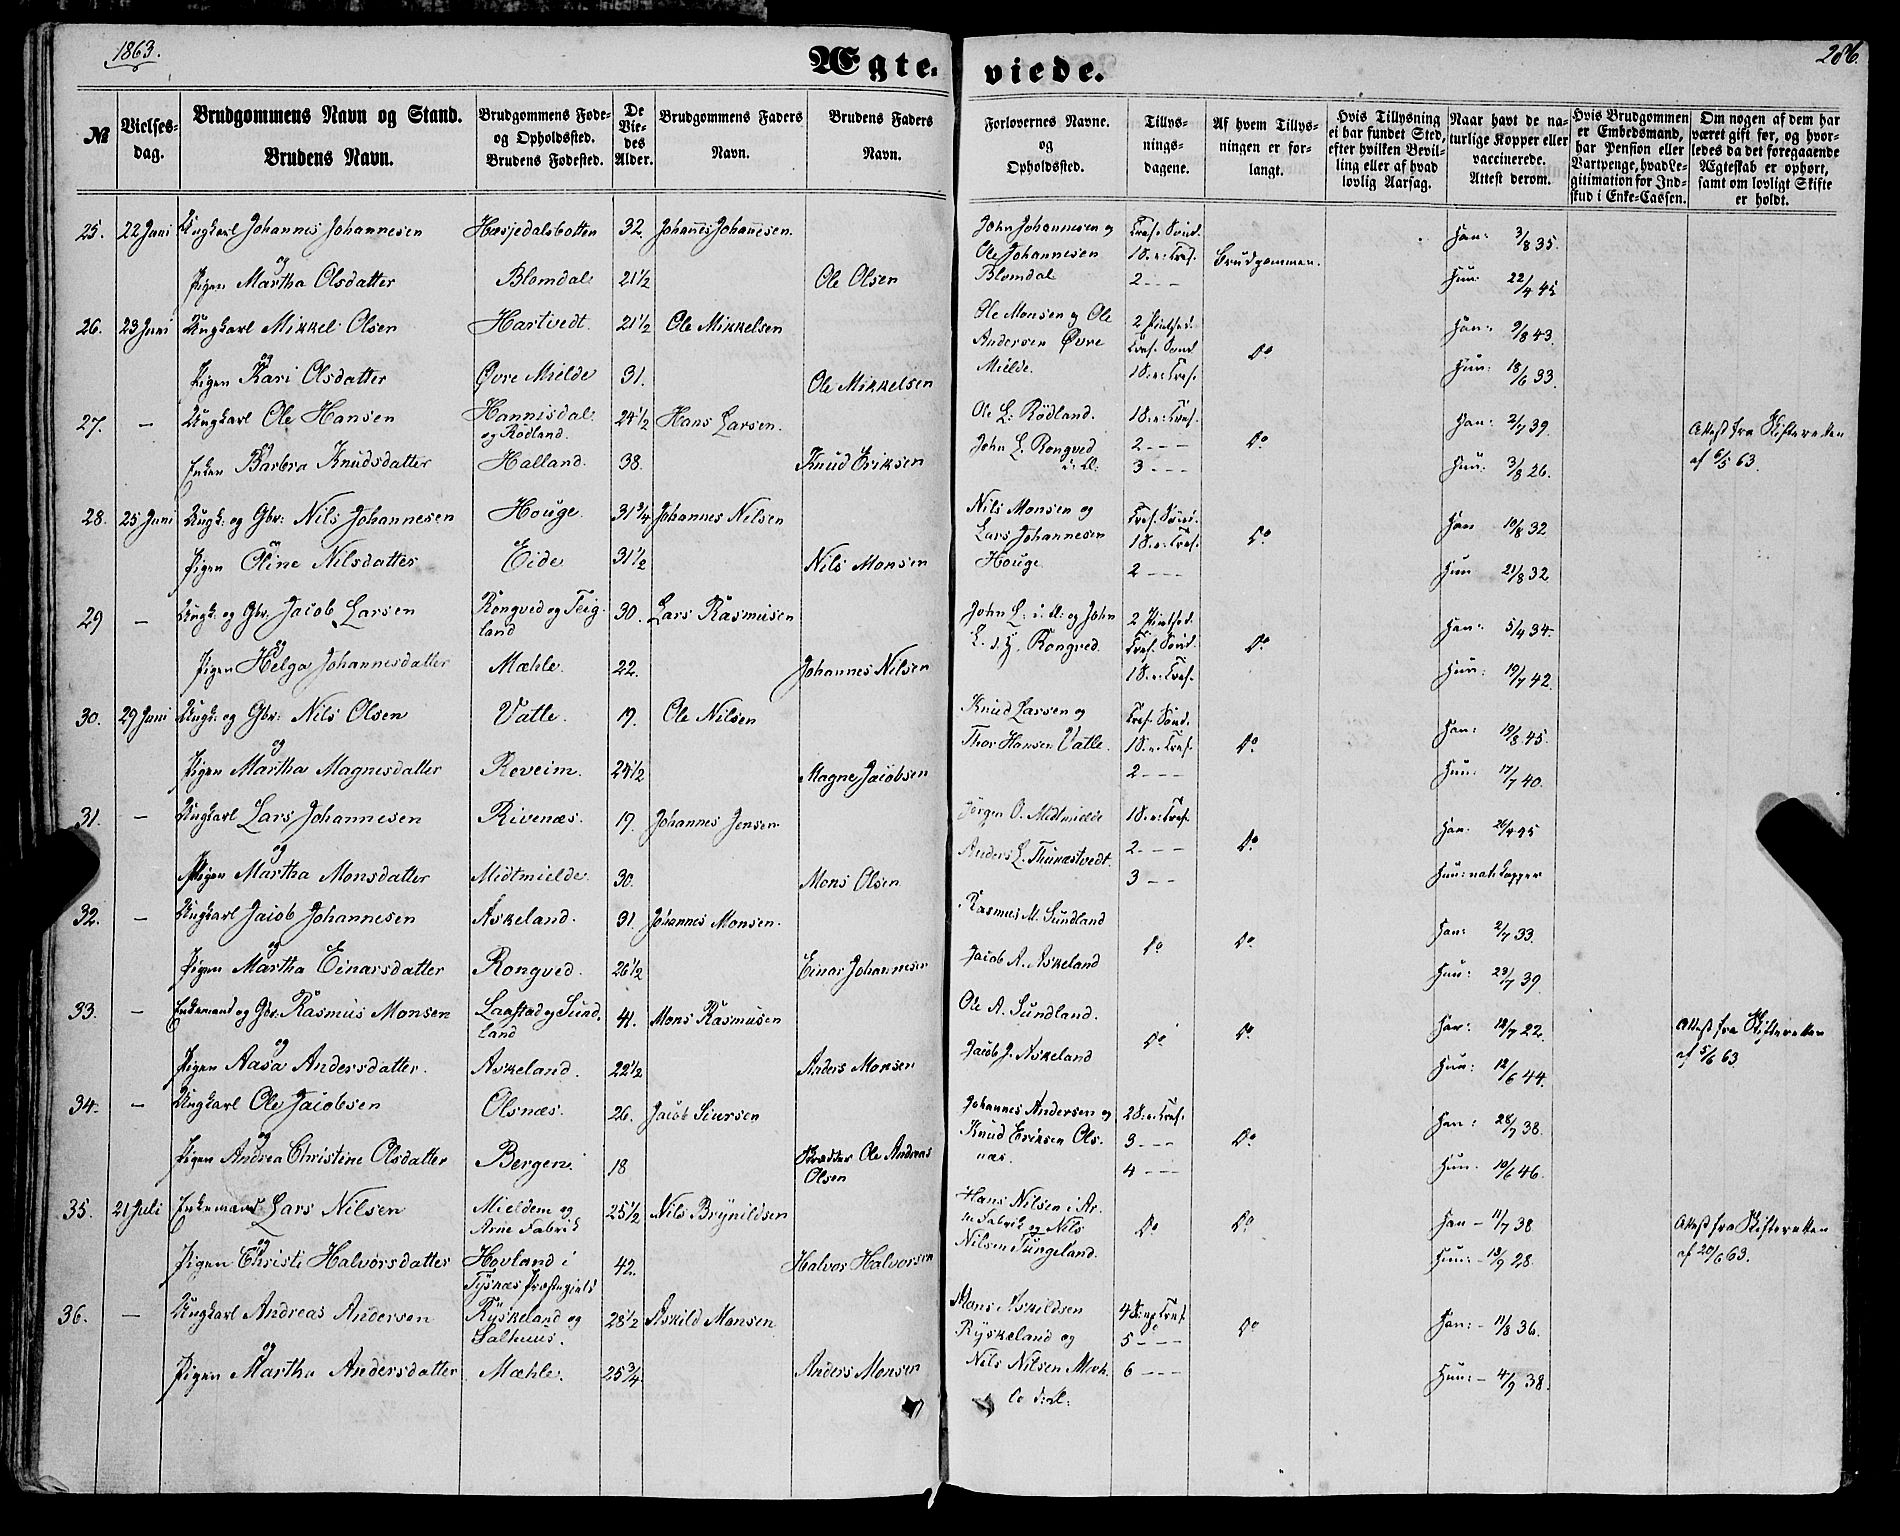 1863.
Ægte-
viede.
286.
№
Vielses-
dag.
Brudgommens Navn og Stand.
Brudens Navn.
Brudgommens Føde-
og Opholdssted.
Brudens Fødested.
De
Vie-
des
Alder.
Brudgommens Faders
Navn.
Brudens Faders
Navn.
Forlovernes Navne.
og
Opholdssted.
Tillys-
nings-
dagene.
Af hvem Tillys-
ningen er for-
langt.
Hvis Tillysning
ei har fundet Sted,
efter hvilken Bevil-
ling eller af hvad
lovlig Aarsag.
Naar havt de na-
turlige Kopper eller
vaccinerede.
Attest derom.
Hvis Brudgommen
er Embedsmand,
har Pension eller
Vartpenge, hvad Le-
gitimation for Ind-
skud i Enke-Cassen.
Om nogen af dem har
været gift før, og hvor-
ledes da det foregaaende
Ægteskab er ophørt,
samt om lovligt Skifte
er holdt.
25. 22 Juni Ungkarl Johannes Johannesen Hæsjedalsbotten 32. Johannes Johannesen.
og
Pigen Martha Olsdatter Blomdal 21½ Ole Olsen
John Johannesen og
Ole Johannesen
Blomdal
Tref. Sönd.
1 S. e. Tref.
2 - - -
Brudgommen.
Han: 3/8 35.
Hun: 22/4 45
26. 23 Juni Ungkarl Mikkel Olsen Hartvedt. 21½ Ole Mikkelsen
og
Pigen Kari Olsdatter Øvre Mielde 31. Ole Mikkelsen
Ole Monsen og Ole
Andersen Øvre
Mielde.
2 Pintsed.
Tref. Sönd
1 S. e. Tref.
Do
Han: 9/8 43.
Hun: 18/6 33.
27. — Ungkarl Ole Hansen Hannisdal og Rödland. 24½ Hans Larsen.
og
Enken Barbra Knudsdatter Halland. 38. Knud Eriksen
Ole L. Rödland.
John L. Rongved
i. d.
1 S. e. Tref.
2 - - -
3 - - -
Do
Han: 2/7 39.
Hun: 3/8 26.
Attest fra Skifteretten
af 6/5 63.
28. 25 Juni Ungk. og Gbr. Nils Johannesen Houge 31¾ Johannes Nilsen
og
Pigen Oline Nilsdatter Eide 31½ Nils Monsen
Nils Monsen og
Lars Johannesen
Houge
Tref. Sönd.
1 S. e. Tref.
2 - - -
Do
Han 10/8 32
Hun 21/8 32
29 — Ungk. og Gbr. Jacob Larsen Rongved og Teigland 30. Lars Rasmusen
og
Pigen Helga Johannesdatter Mæhle. 22. Johannes Nilsen
John L. i. d. og John
L. i. y. Rongved.
2 Pintsed.
Tref. Sönd.
1 S. e. Tref.
Do
Han: 5/4 34.
Hun: 19/7 42.
30. 29 Juni Ungk. og Gbr. Nils Olsen Vatle. 19. Ole Nilsen
og
Pigen Martha Magnesdatter Reveim. 24½ Magne Jacobsen
Knud Larsen og
Thor Hansen Vatle.
Tref. Sönd.
1 S. e. Tref.
2 - - -
Do
Han: 19/8 45.
Hun: 17/7 40.
31. — Ungkarl Lars Johannesen Rivenæs. 19. Johannes Jensen
og
Pigen Martha Monsdatter Midtmielde. 30. Mons Olsen
Jörgen O. Midtmielde
Anders L. Thunæstvedt.
1 S. e. Tref.
2 - - -
3 - -
Do
Han: 26/4 45
Hun: nat. Kopper
32. — Ungkarl Jacob Johannesen Askeland. 31. Johannes Monsen.
og
Pigen Martha Einarsdatter Rongved. 26½ Einar Johannesen
Rasmus M. Sundland
Jacob A. Askeland
Do
Do
Han: 2/7 33.
Hun: 23/7 39.
33. — Enkemand og Gbr. Rasmus Monsen Laastad og Sundland 41. Mons Rasmusen
og
Pigen Aasa Andersdatter. Askeland. 22½ Anders Monsen
Ole A. Sundland.
Jacob J. Askeland
Do
Do
Han: 18/7 22.
Hun: 12/6 44.
Attest fra Skifteretten
af 5/6 63.
34. — Ungkarl Ole Jacobsen Olsnæs. 26. Jacob Siursen
og
Pigen Andrea Christine Olsdatter Bergen. 18 Skrædder Ole Andreas
Olsen
Johannes Andersen og
Knud Eriksen Ols-
næs.
2 S. e. Tref.
3 - - -
4 - - -
Do
Han: 28/7 38.
Hun: 10/6 46.
35. 21 Juli Enkemand Lars Nilsen Mieldem og Arne Fabrik 25½ Nils Brynildsen
og
Pigen Christi Halvorsdatter Hovland i Tysnæs Præstegield 42. Halvor Halvorsen
Hans Nilsen i Ar-
ne Fabrik og Nils
Nilsen Tungeland.
Do
Do
Han - 11/7 38
Hun: - 13/9 28.
Attest fra Skifteretten
af 20/6 63.
36. — Ungkarl Andreas Andersen Ryskeland og Salhuus. 28½ Askild Monsen
og
Pigen Martha Andersdatter Mæhle. 25¾ Anders Monsen
Mons Askildsen
Ryskeland og
Nils Nilsen Mæh-
le i. d.
4 S. e. Tref.
5 - - -
6 - - -
Do
Han: - 11/8 36.
Hun: - 4/9 38.